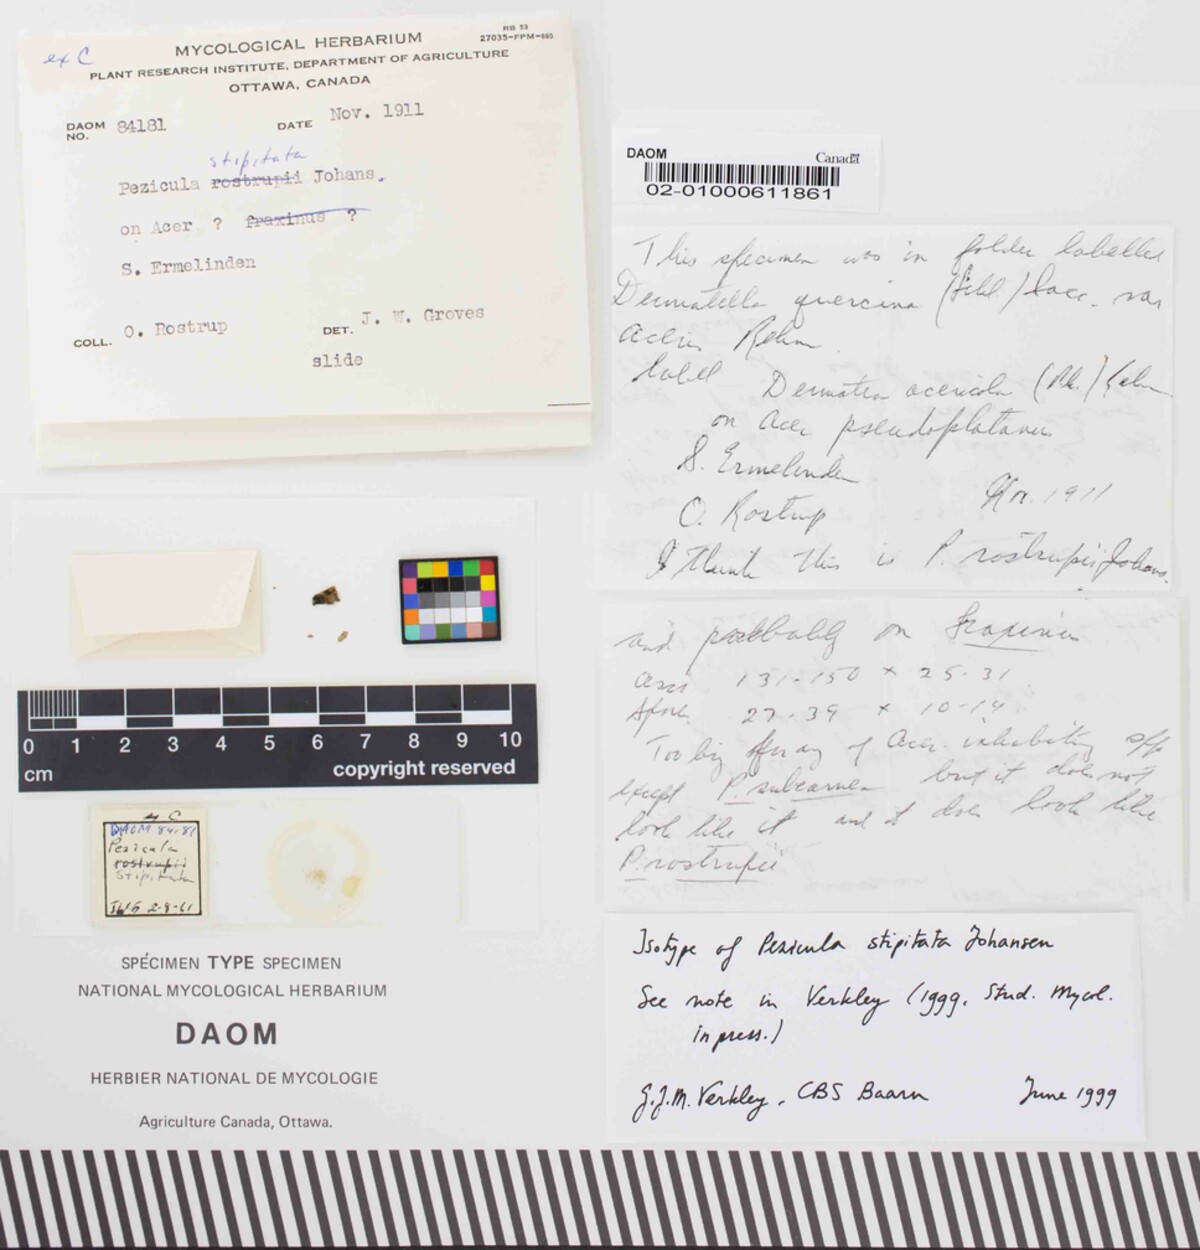 ex C
RB 53
27035-FPM-885
MYCOLOGICAL HERBARIUM
PLANT RESEARCH INSTITUTE, DEPARTMENT OF AGRICULTURE
OTTAWA, CANADA
DAOM NO. 84181 DATE Nov. 1911
stipitata
Pezicula rostrupii Johans.
on Acer ? fraxinus ?
S. Ermelinden
COLL. O. Rostrup DET. J. W. Groves
slide
DAOM Canada
02-01000611861
This specimen was in folder labelled
Dermatella quercina (Fckl.) Sacc. var
aceris Rehm
label Dermatea acericola (Pk.) Rehm
on Acer pseudoplatanus
S. Ermelinden
Nov. 1911
O. Rostrup
I think this is P. rostrupii Johans.
and probably on Fraxinus
asci 131-150 x 25-31
spores 27-39 x 10-14
Too big for any of Acer inhabiting spp
except P. subcarnea but it does not
look like it and it does look like
P. rostrupii
0 1 2 3 4 5 6 7 8 9 10
cm copyright reserved
ex C
DAOM 84181
Pezicula
rostrupii
stipitata
JWG 2-8-61
SPÉCIMEN TYPE SPECIMEN
NATIONAL MYCOLOGICAL HERBARIUM
DAOM
HERBIER NATIONAL DE MYCOLOGIE
Agriculture Canada, Ottawa.
Isotype of Pezicula stipitata Johansen
See note in Verkley (1999, Stud. Mycol.
in press.)
G.J.M. Verkley, CBS Baarn June 1999